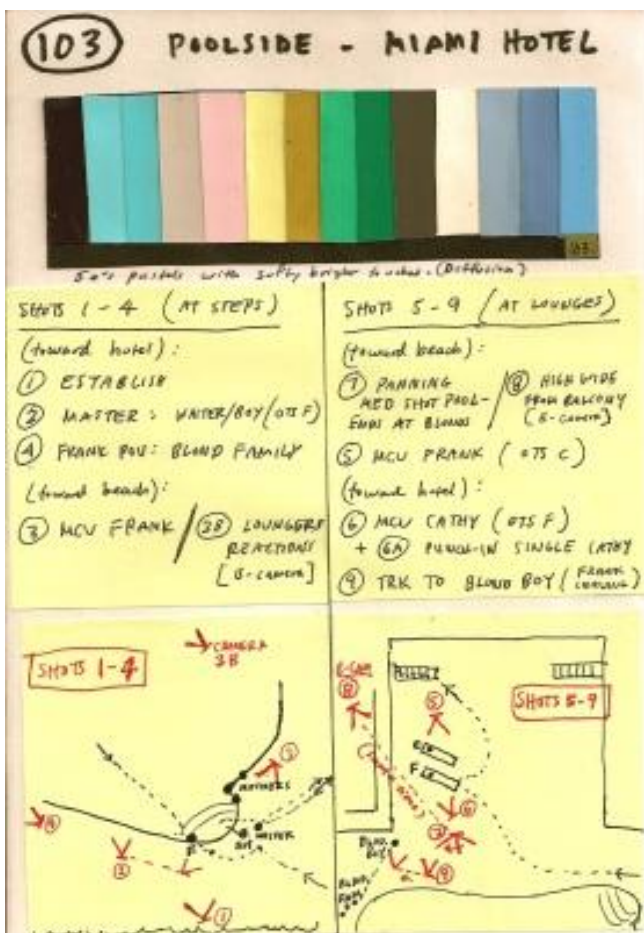 103 POOLSIDE - MIAMI HOTEL
103
50's pastels with softly bright touches. (Diffusion)
SHOTS 1-4 (AT STEPS)
(toward hotel):
① ESTABLISH
② MASTER: WAITER/BOY (OTS F)
④ FRANK POV: BLOND FAMILY
(toward beach):
③ MCU FRANK / ③B LOUNGERS
REACTIONS
[B-camera]
SHOTS 5-9 (AT LOUNGES)
(toward beach):
⑦ PANNING
MED SHOT POOL-
ENDS AT BLONDS
/ ⑧ HIGH WIDE
FROM BALCONY
[B-camera]
⑤ MCU FRANK (OTS C)
(toward hotel):
⑥ MCU CATHY (OTS F)
+ ⑥A PUNCH-IN SINGLE CATHY
⑨ TRK TO BLOND BOY (FRANK
LOOKING)
SHOTS 1-4
CAMERA
3B
③
MOTHERS
WAITER
F
BOY
④
②
①
B-CAM
⑧
SHOTS 5-9
⑤
C
F
⑥
⑦
BLOND
BOY
⑨
BLOND